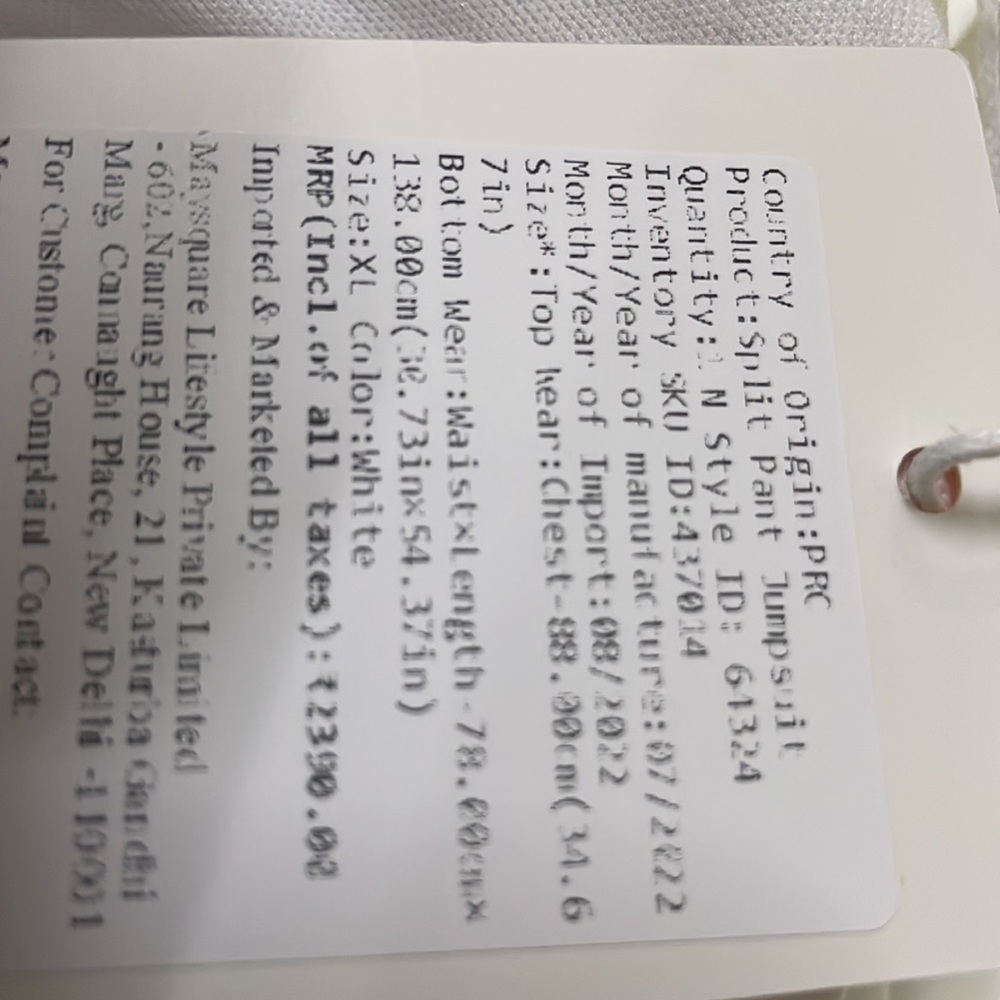 Country of Origin:PRC
Product:Split Pant Jumpsuit
Quantity:1 N Style ID: 64324
Inventory SKU ID:437014
Month/Year of manufacture:07/2022
Month/Year of Import:08/2022
Size*:Top Wear:Chest-88.00cm(34.6
7in)
Bottom Wear:WaistxLength-78.00cmx
138.00cm(30.73inx54.37in)
Size:XL Color:White
MRP(Incl.of all taxes):₹2390.00
Imported & Marketed By:
Maysquare Lifestyle Private Limited
- 602,Naurang House, 21, Kasturba Gandhi
Marg, Connaught Place, New Delhi -110001
For Customer Complaint Contact